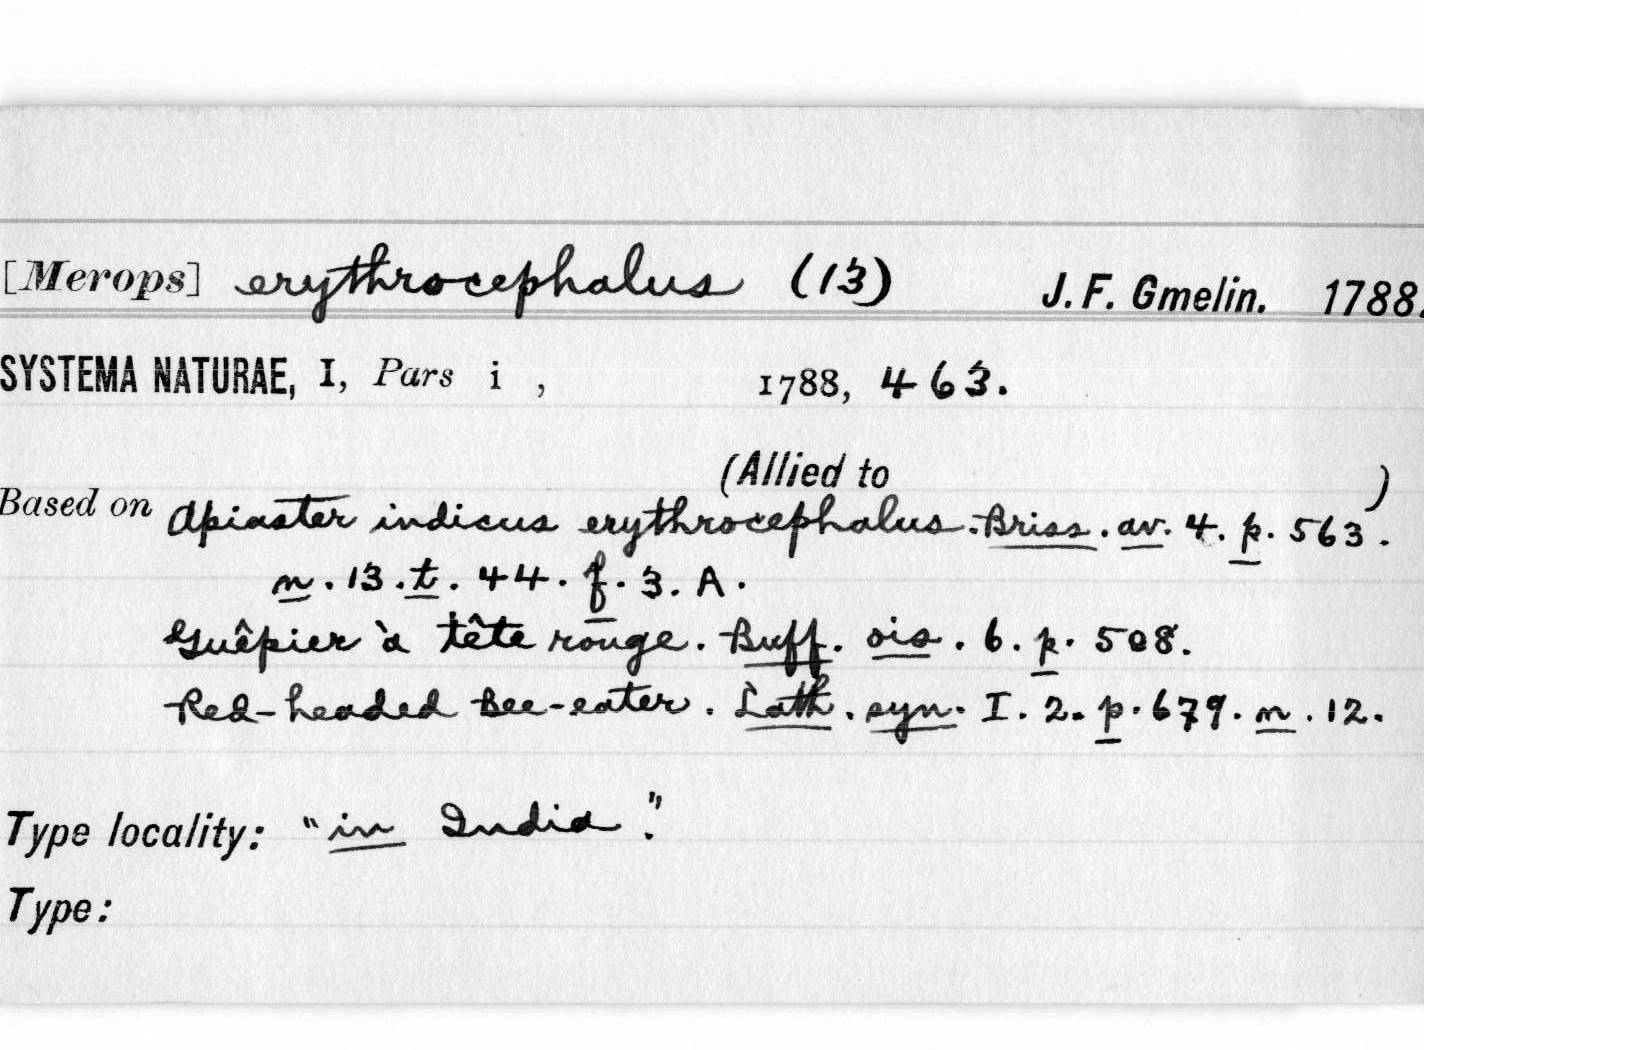 [Merops] erythrocephalus (13) J. F. Gmelin. 1788.
SYSTEMA NATURAE, I, Pars i , 1788, 463.
(Allied to )
Based on Apiaster indicus erythrocephalus. Briss. av. 4. p. 563.
n. 13. t. 44. f. 3. A.
Guêpier à tête rouge. Buff. ois. 6. p. 508.
Red-headed bee-eater. Lath. syn. I. 2. p. 679. n. 12.
Type locality: "in India."
Type: